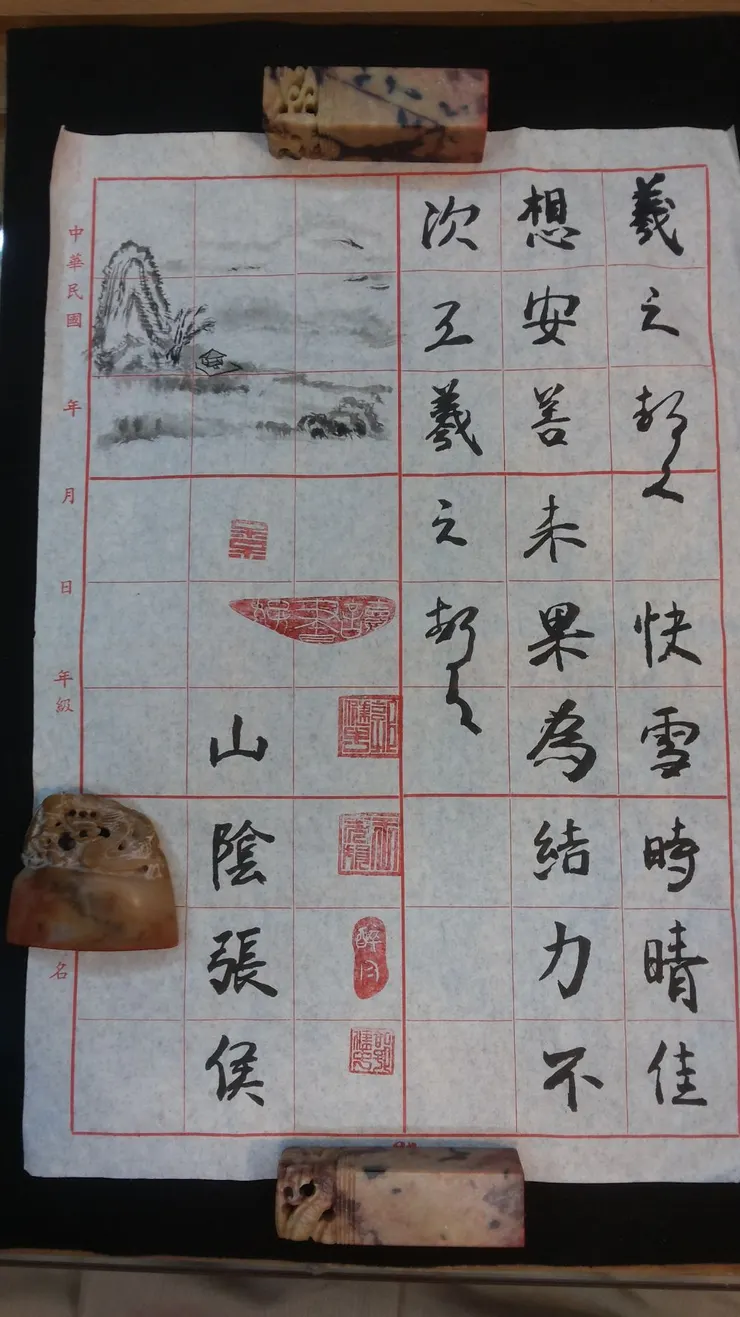 羲之頓首快雪時晴佳
想安善未果為結力不
次王羲之頓首
山陰張侯
醉月
中華民國 年 月 日 年級 名